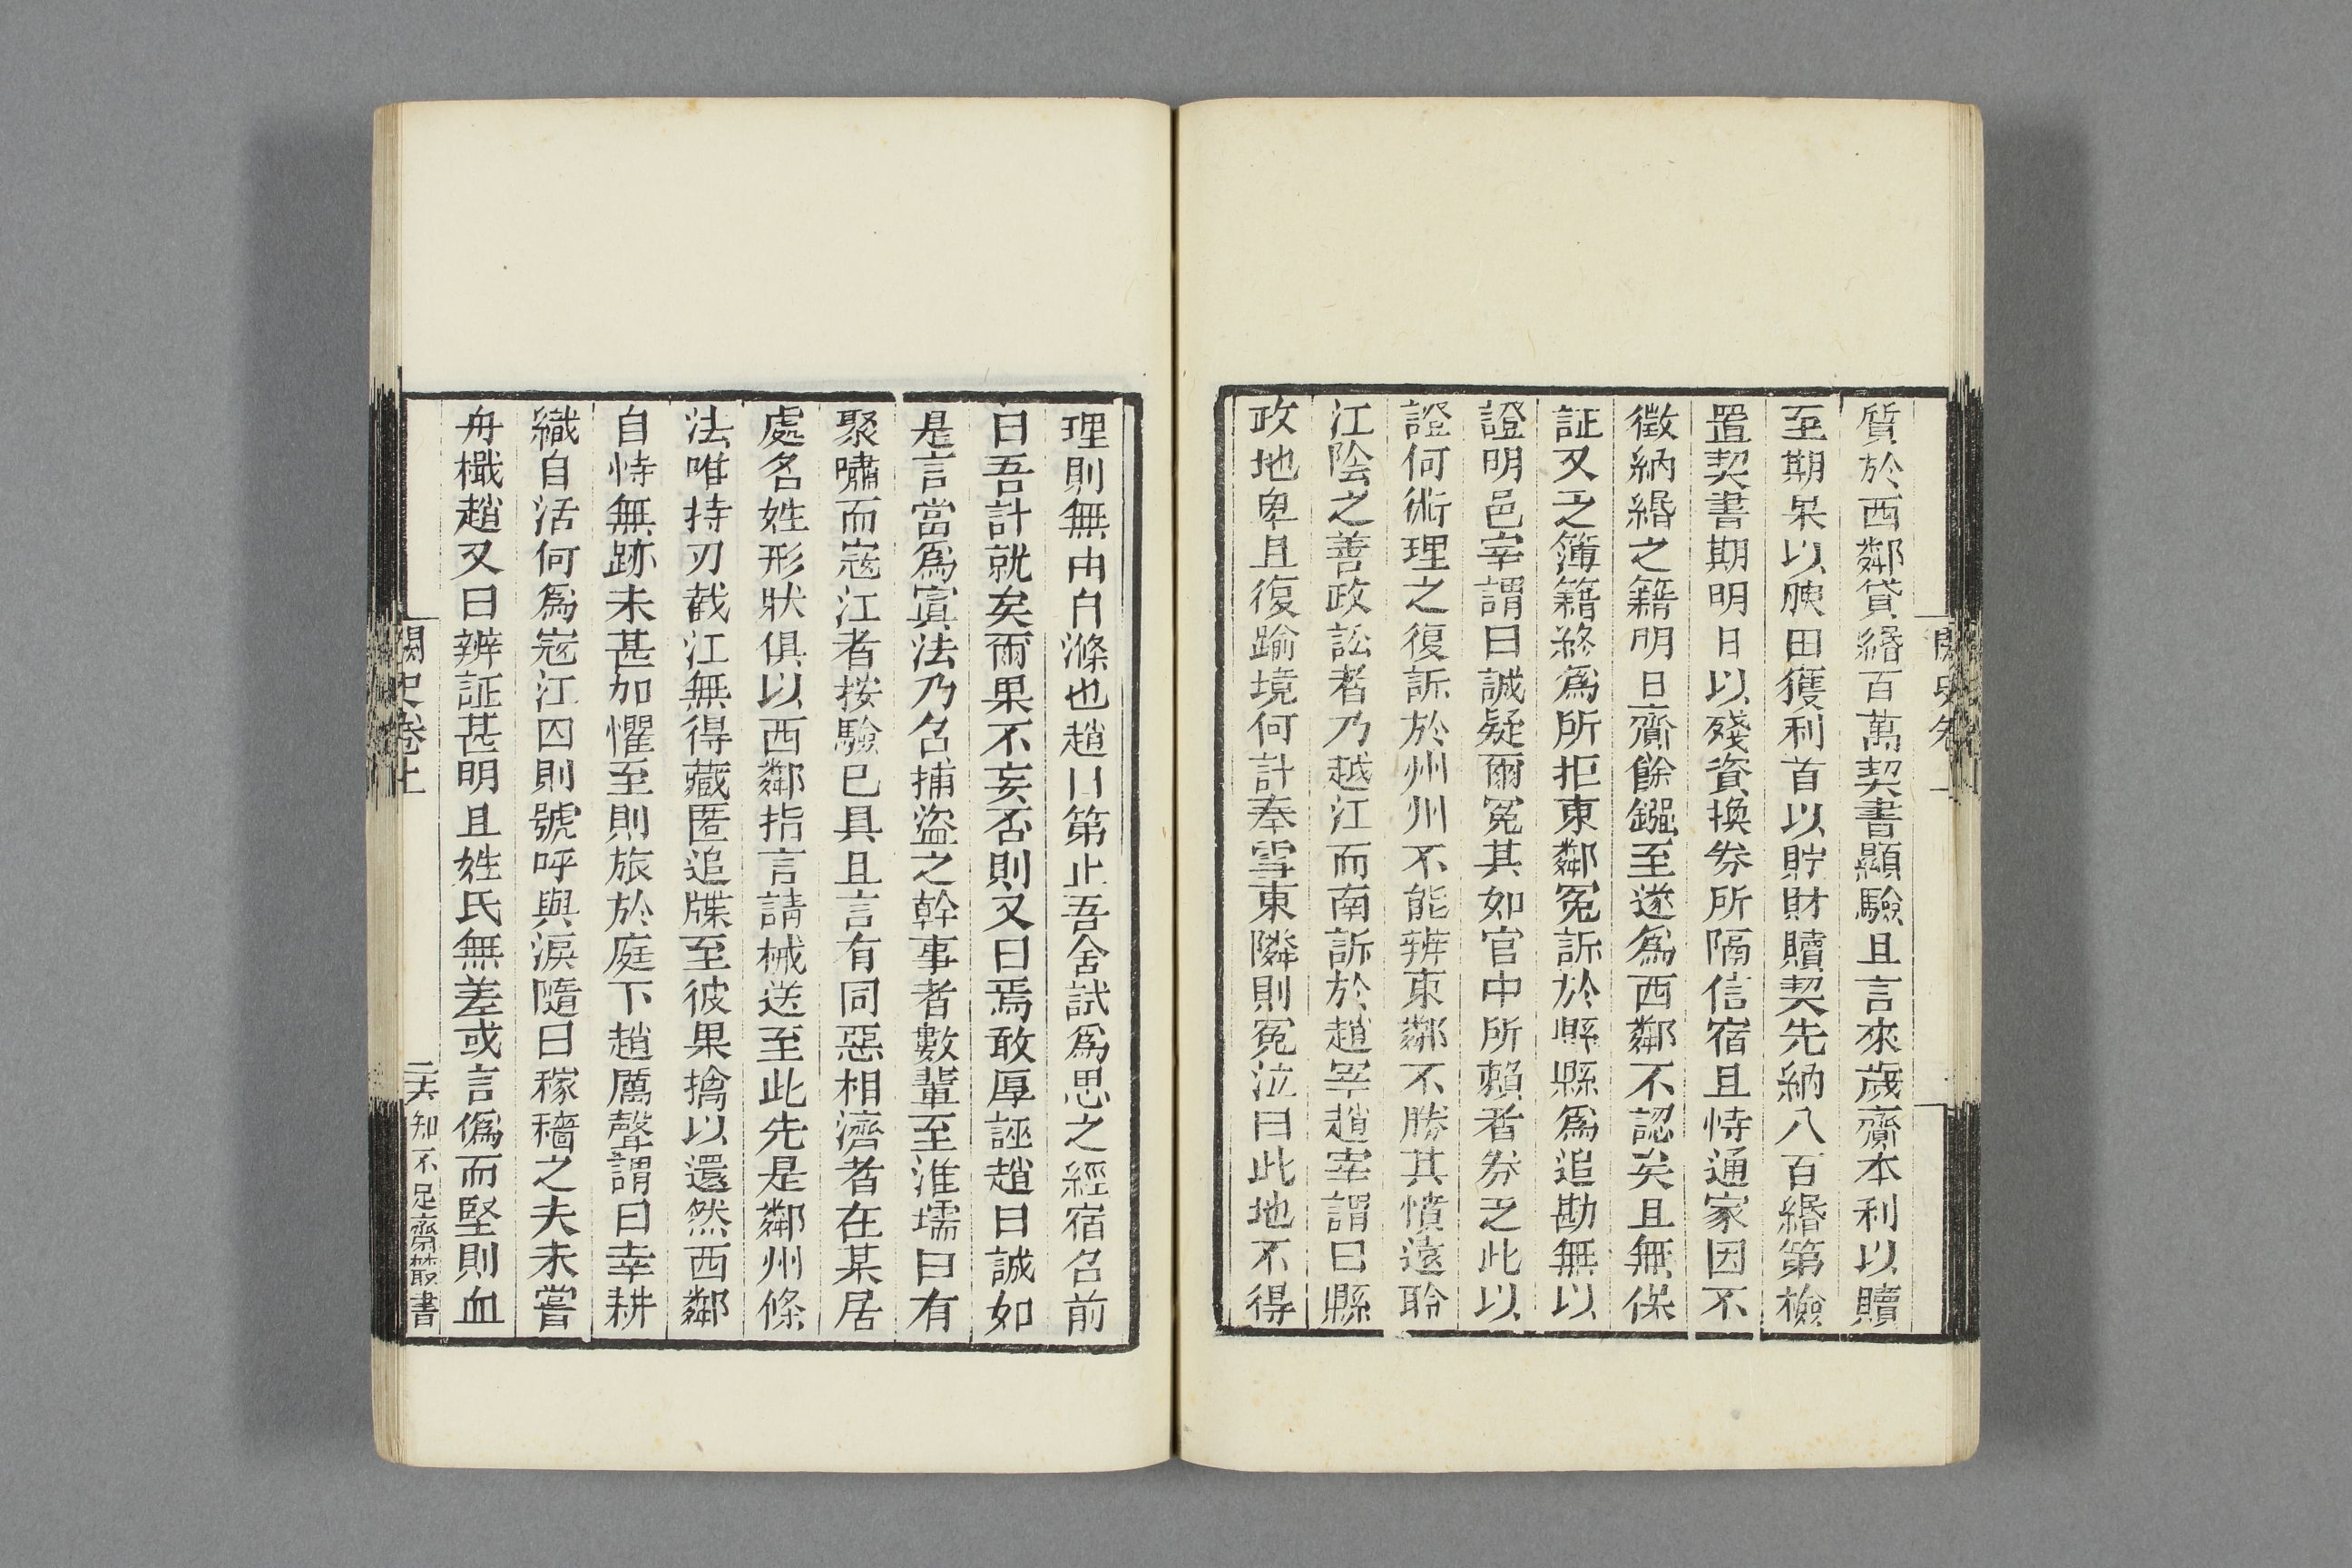 質於西鄰貸緡百萬契書顯驗且言來歲齎本利以贖
至期果以腴田獲利首以貯財贖契先納八百緡第檢
置契書期明日以殘資換券所隔信宿且恃通家因不
徵納緡之籍明日齎餘鏹至遂爲西鄰不認矣且無保
証又乏簿籍終爲所拒東鄰冤訴於縣縣爲追勘無以
證明邑宰謂曰誠疑爾冤其如官中所賴者券乏此以
證何術理之復訴於州州不能辨東鄰不勝其憤遠聆
江陰之善政訟者乃越江而南訴於趙宰趙宰謂曰縣
政地卑且復踰境何計奉雪東隣則冤泣曰此地不得
理則無由自滌也趙曰第止吾舍試爲思之經宿名前
曰吾計就矣爾果不妄否則又曰焉敢厚誣趙曰誠如
是言當爲寘法乃名捕盜之幹事者數輩至淮壖曰有
聚嘯而寇江者按驗已具且言有同惡相濟者在某居
處名姓形狀俱以西鄰指言請械送至此先是鄰州條
法唯持刃截江無得藏匿追牒至彼果擒以還然西鄰
自恃無跡未甚加懼至則旅於庭下趙厲聲謂曰幸耕
織自活何爲寇江囚則號呼與淚隨曰稼穡之夫未嘗
舟檝趙又曰辨証甚明且姓氏無差或言僞而堅則血
闕史卷上
二六
知不足齋叢書